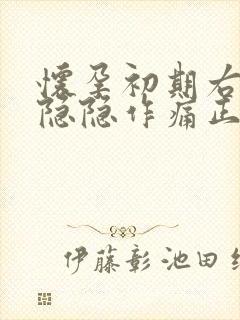 懷孕初期右
隐隐作痛正
伊藤彰池田纟